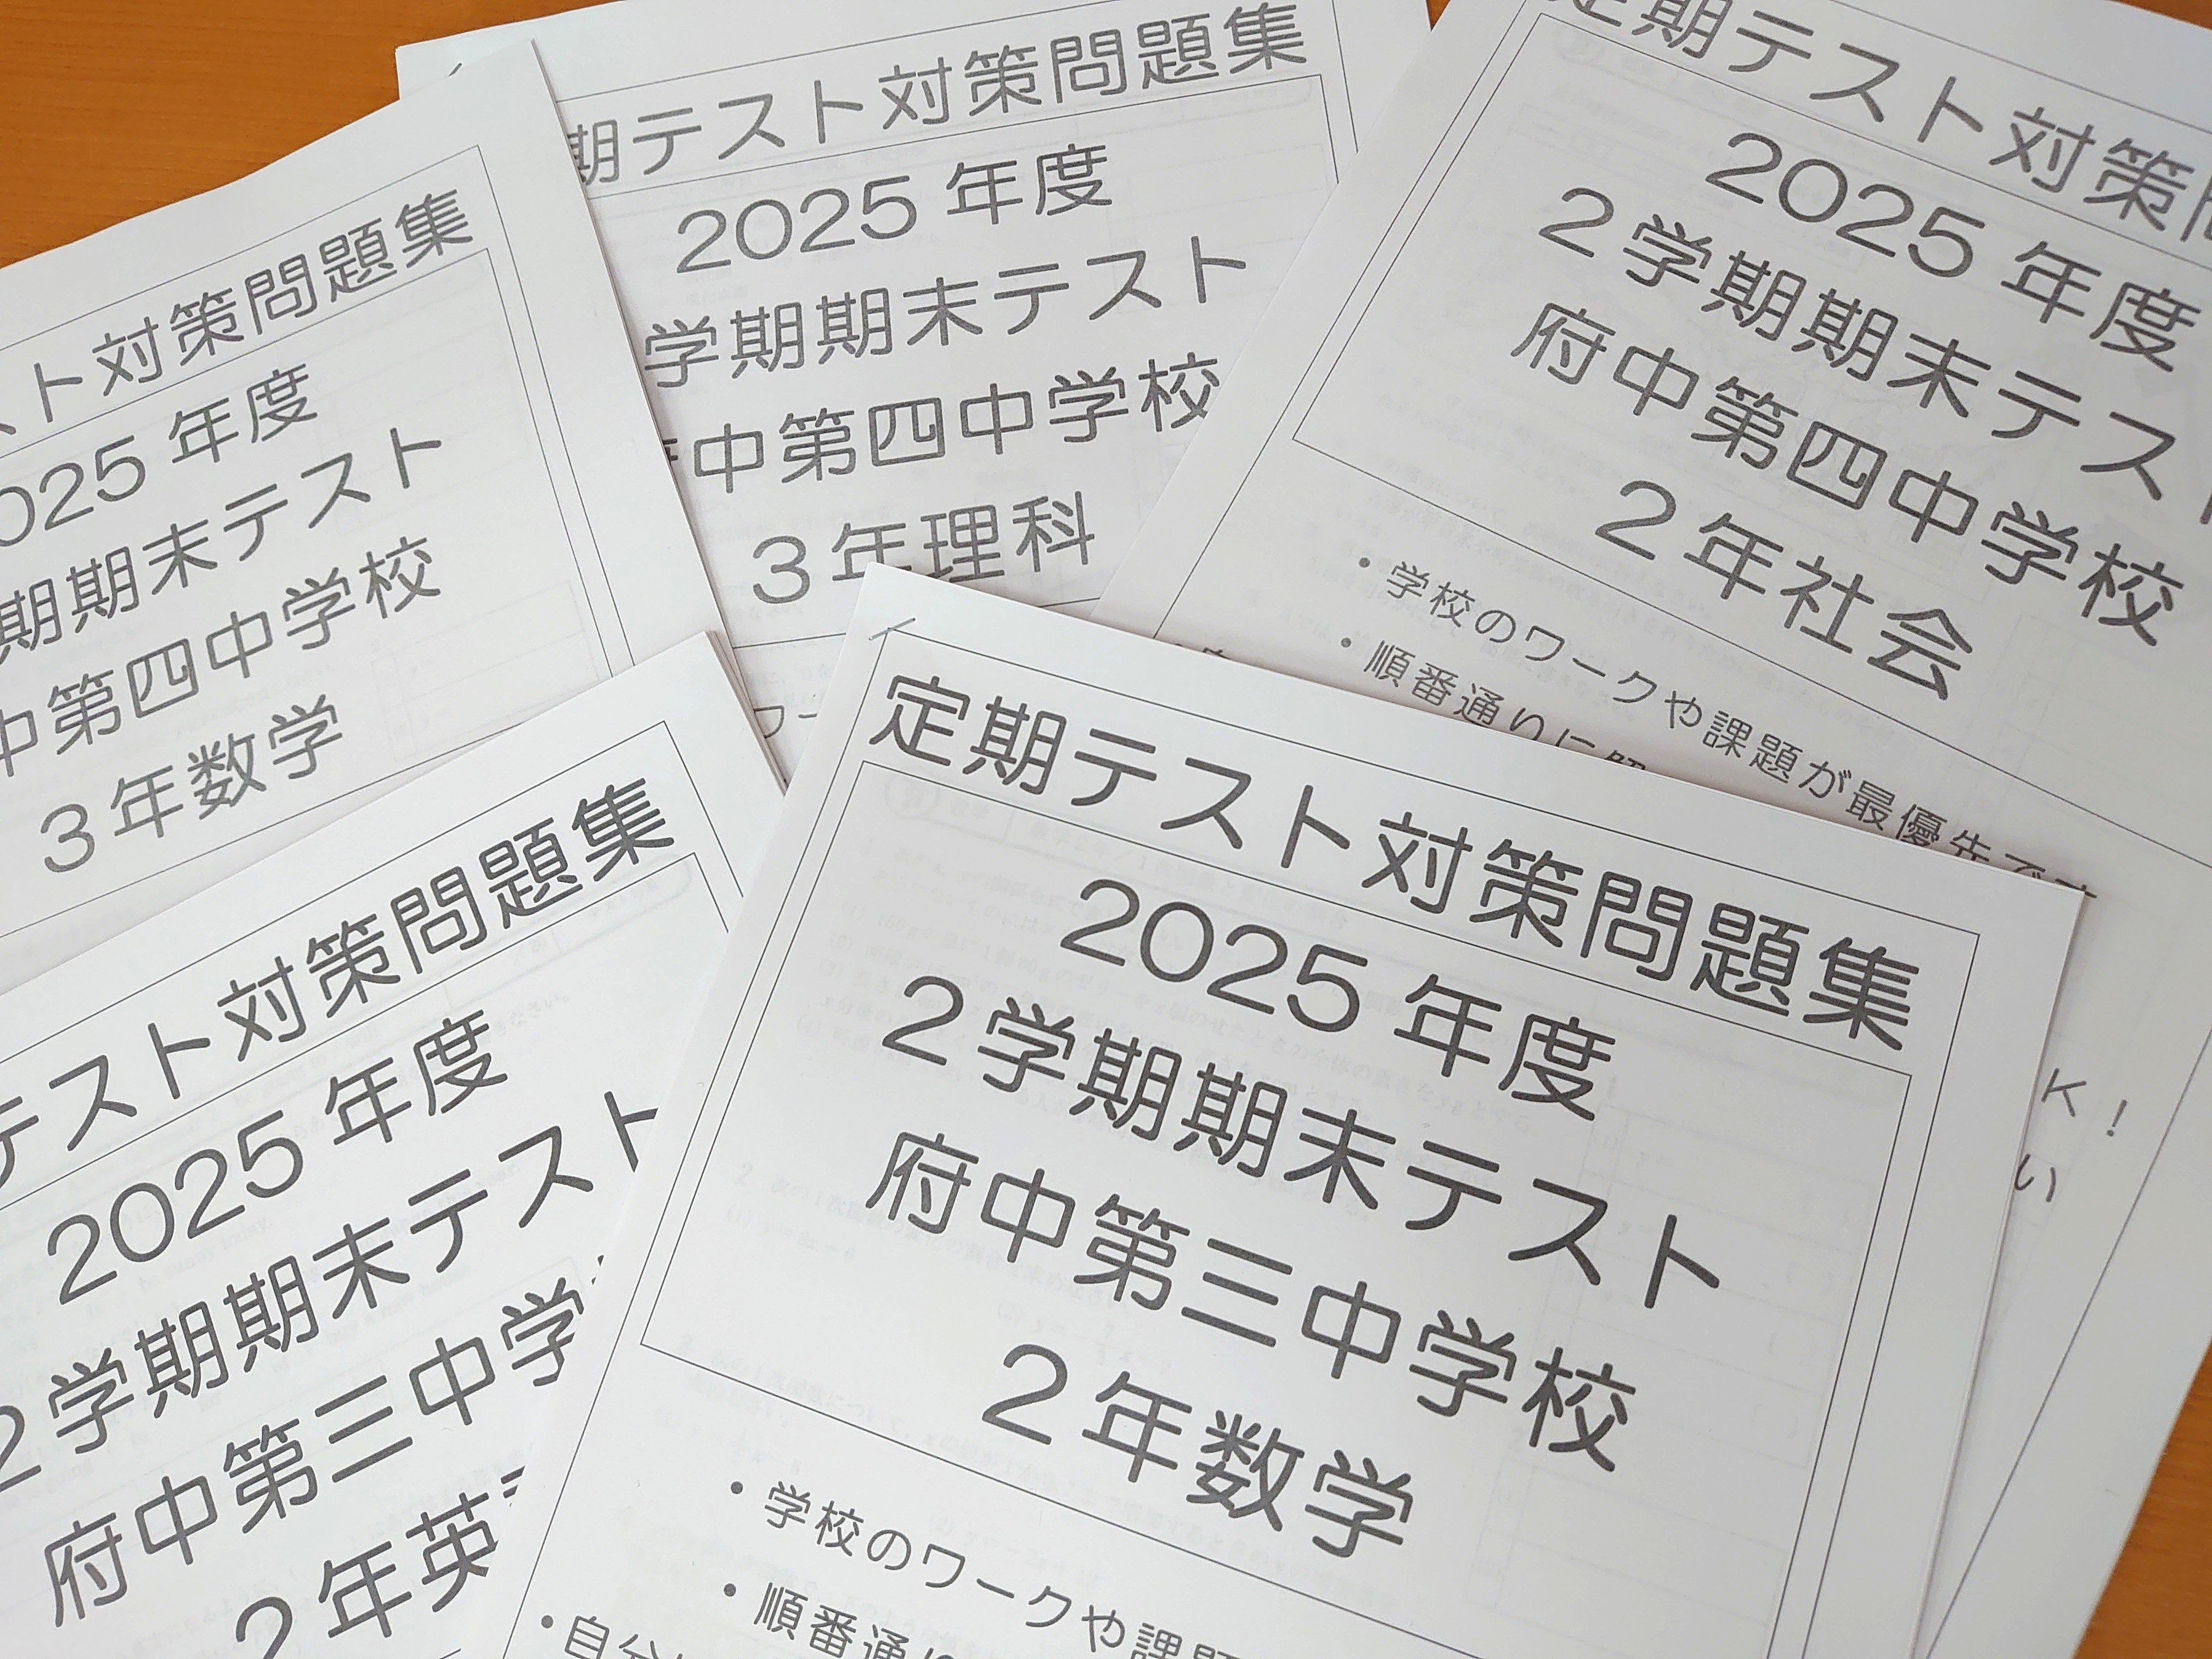 スト対策問題集
2025 年度
期期末テスト
中第四中学校
3年数学
期テスト対策問題集
2025 年度
学期期末テスト
中第四中学校
3年理科
定期テスト対策問
2025 年度
2学期期末テスト
府中第四中学校
2年社会
・学校のワークや課題が最優先です
・順番通りに解
K！
い
テスト対策問題集
2025 年度
2学期期末テスト
府中第三中学
2年英
定期テスト対策問題集
2025 年度
2学期期末テスト
府中第三中学校
2年数学
・学校のワークや課題
・順番通りに
・自分